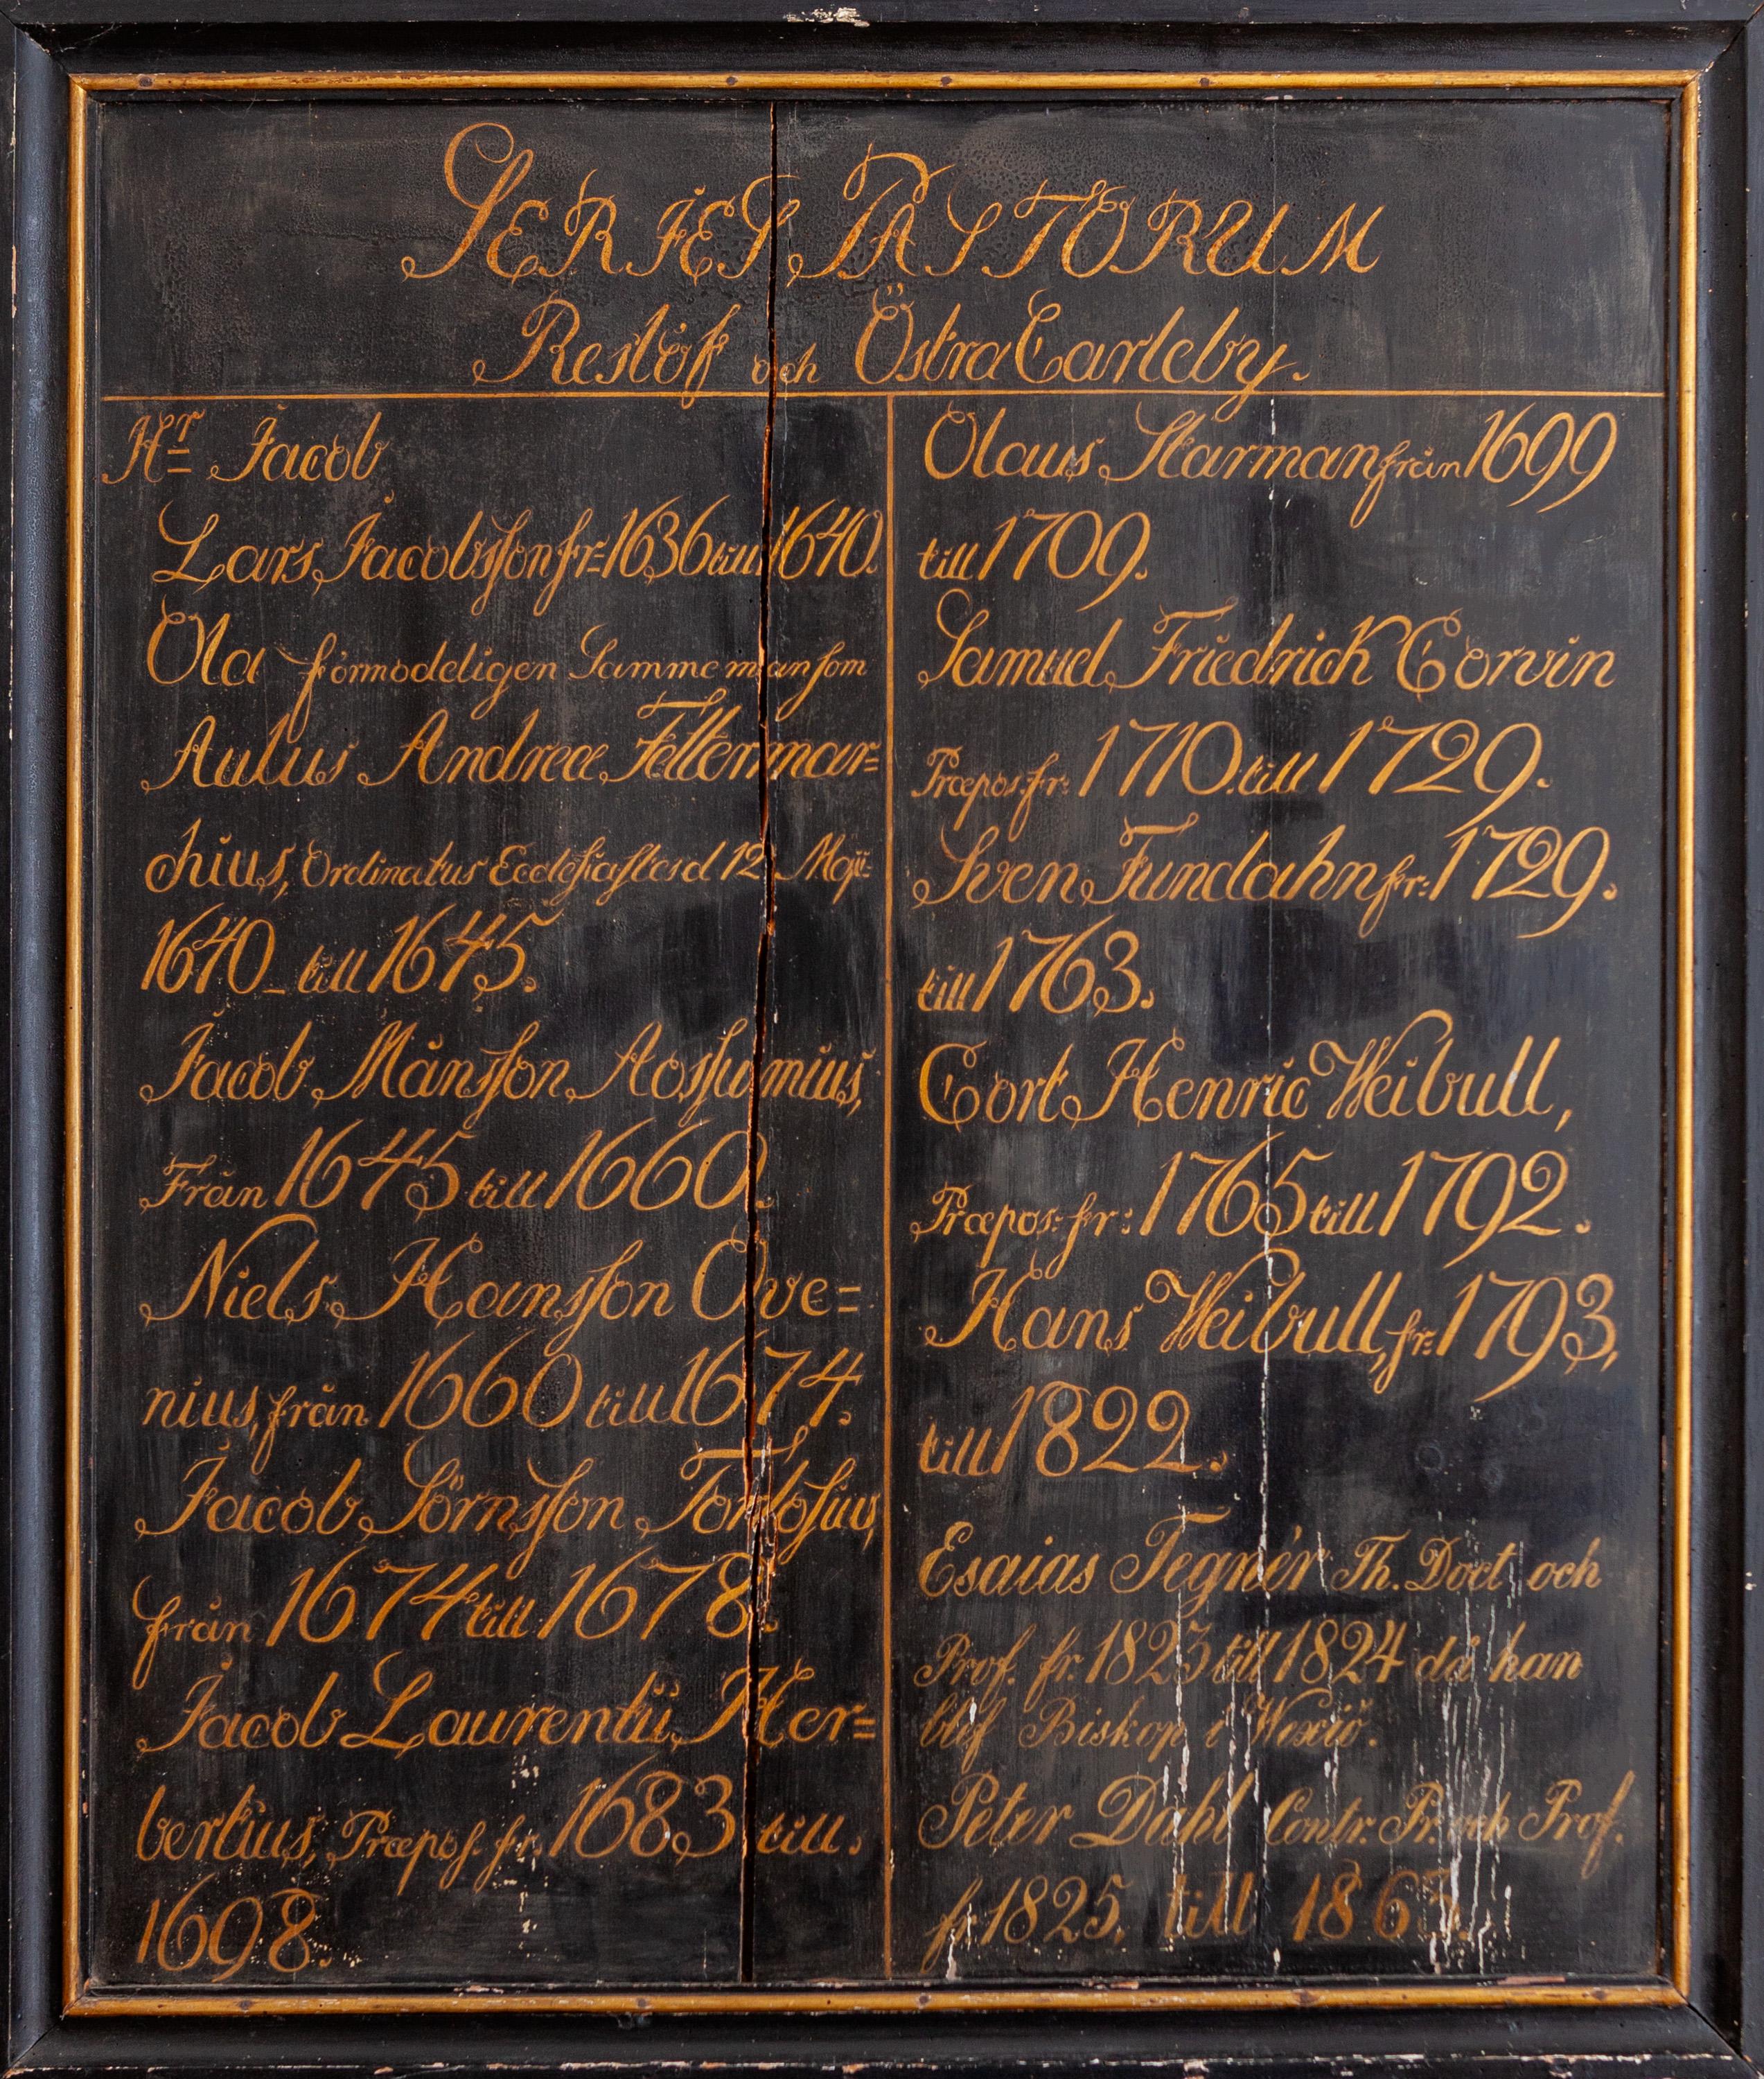 SERIES PASTORUM
Reslöf och Östra Carleby.
Hr Jacob
Lars Jacobsson fr= 1636 till 1640.
Ola förmodeligen Samme man som
Aulus Andreæ Fettermar=
chius, Ordinatus Ecclesiastes d 12 Maji:
1640 _ till 1645.
Jacob Månsson Aossumius,
Från 1645 till 1660.
Niels Hansson Ove=
nius, från 1660 till 1674.
Jacob Sörnsson
från 1674 till 1678.
Jacob Laurentii Her=
bertius, Præpos. fr. 1683 till.
1698.
Olaus Starman från 1699
till 1709.
Samuel Friedrich Corvin
Præpos. fr: 1710. till 1729.
Sven Fundahn fr: 1729.
till 1763.
Cort Henric Weibull,
Præpos: fr: 1765 till 1792.
Hans Weibull, fr= 1793,
till 1822.
Esaias Tegnér Th. Doct och
Prof. fr. 1823 till 1824 då han
blef Biskop i Wexiö.
Peter Dahl Contr. Pr. och Prof.
fr 1825, till